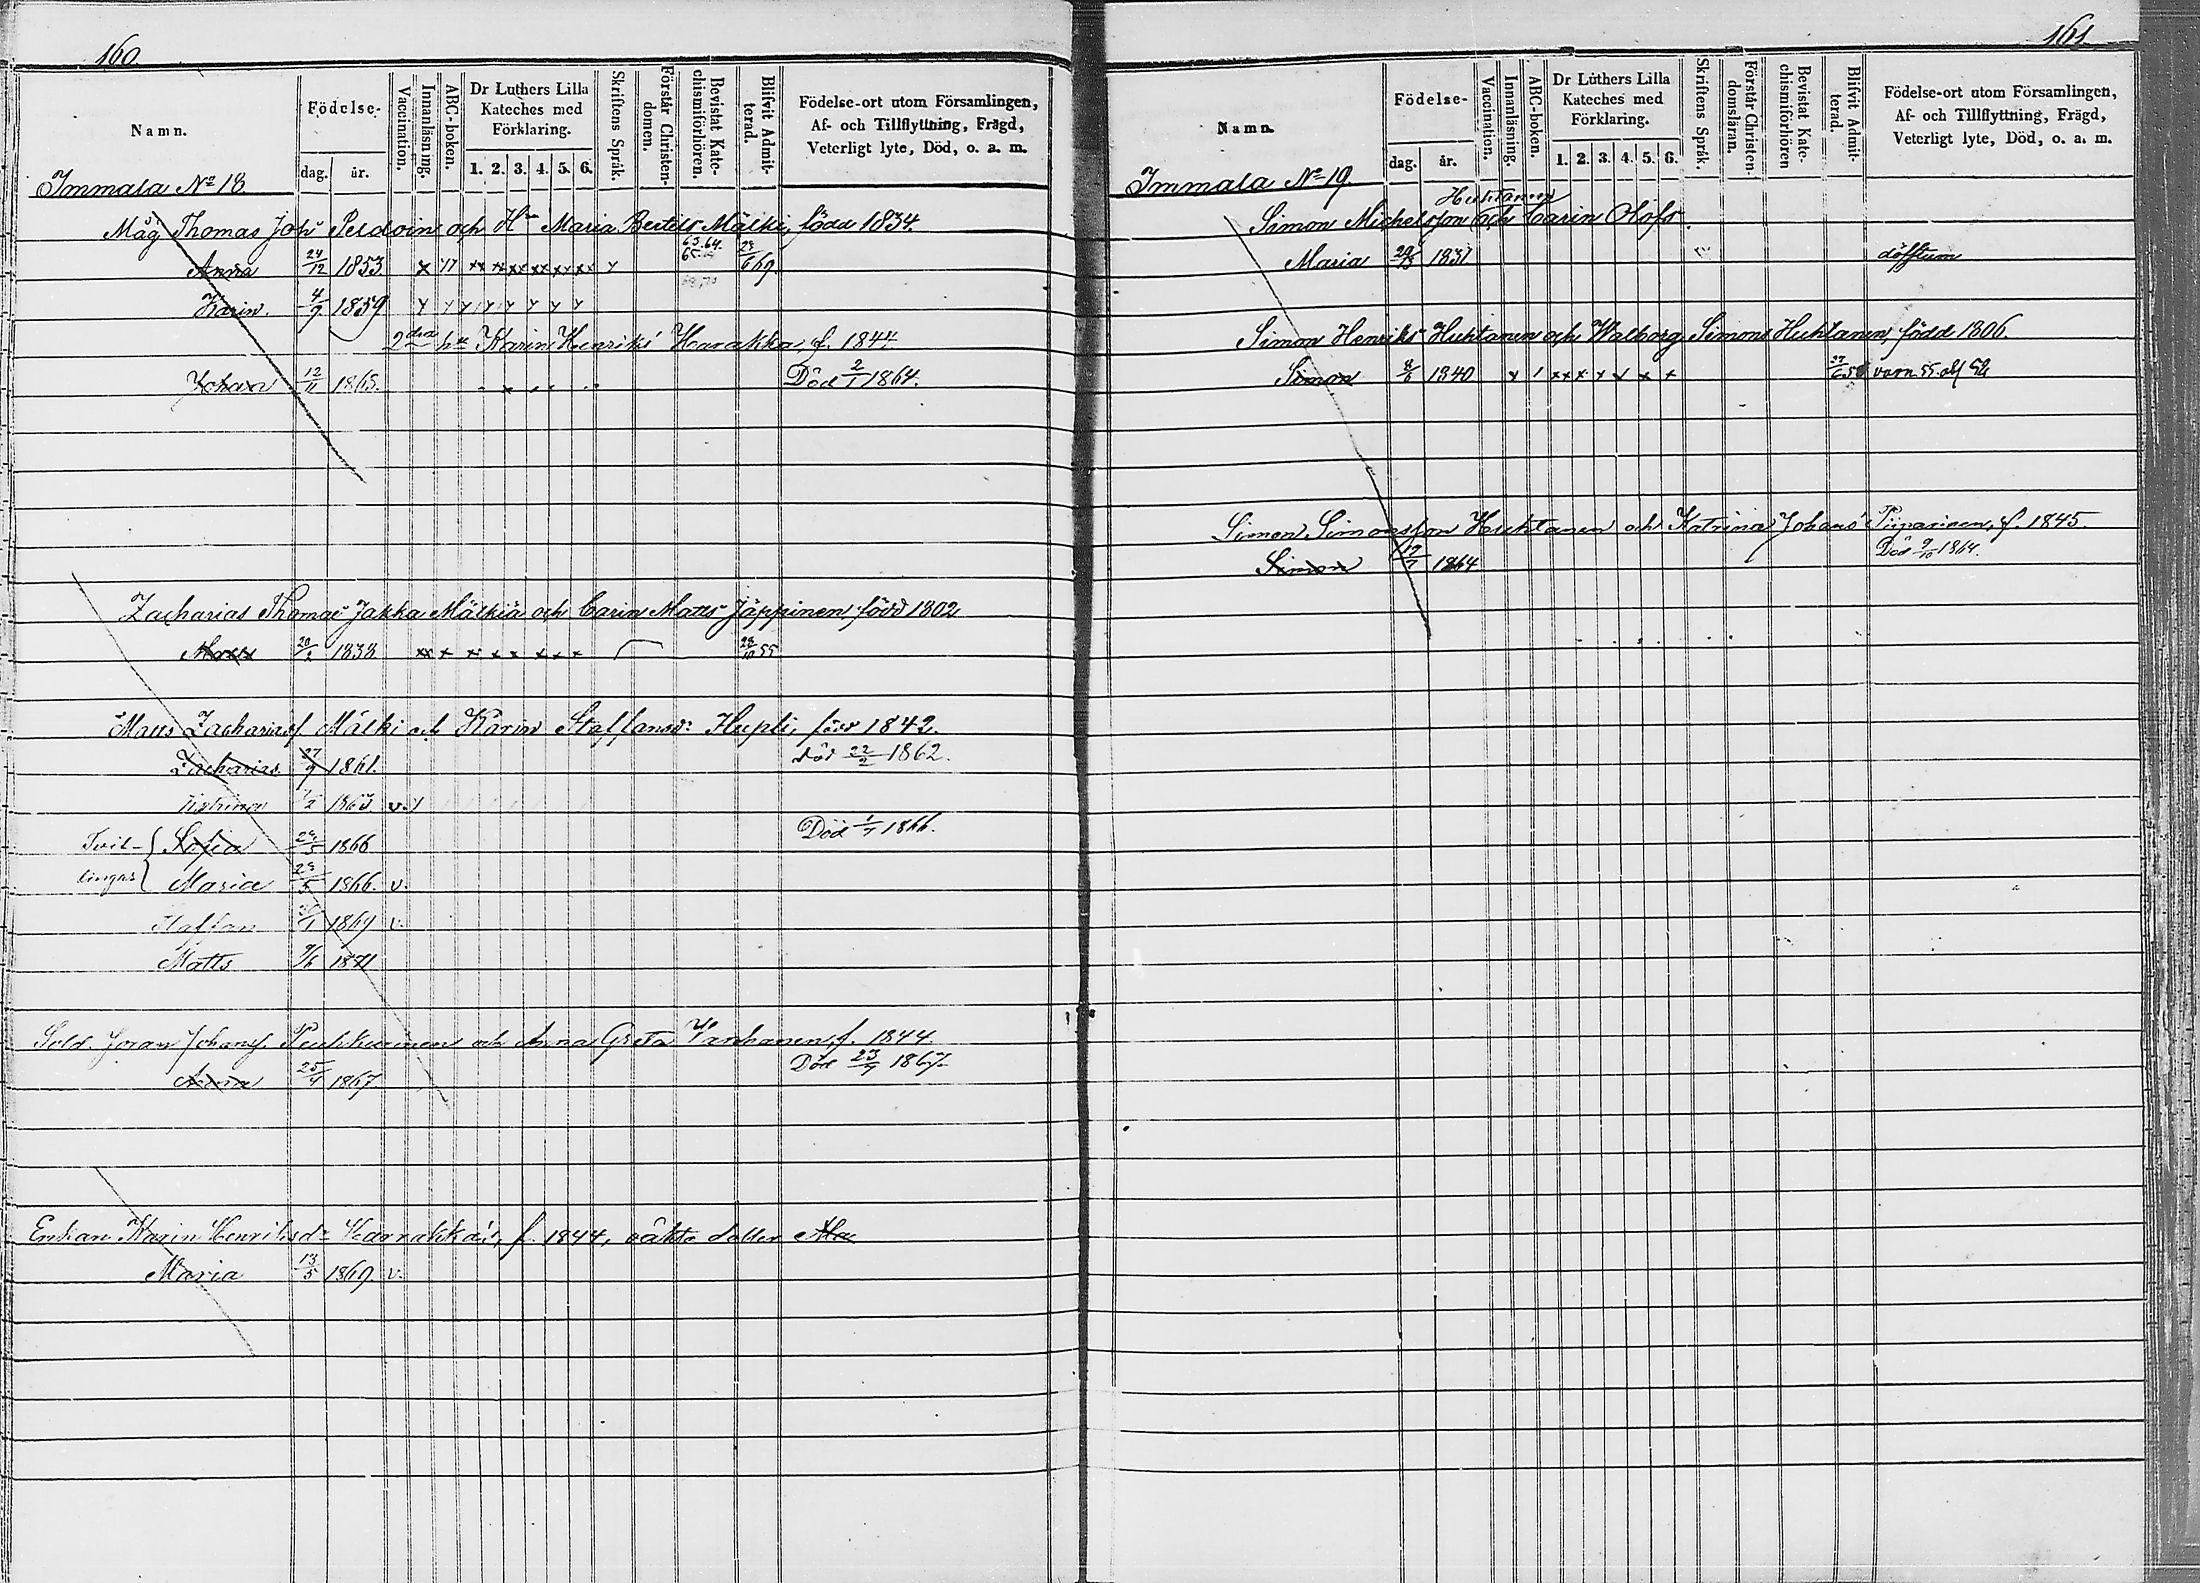 160
Namn.
Födelse-
dag.
år.
Vaccination.
Innanläsning.
ABC-boken.
Dr Luthers Lilla Kateches med Förklaring.
1. 2. 3. 4. 5. 6.
Skriftens Språk.
Förstår Christendomen.
Bevistat Katechismiförhören.
Blifvit Admitterad.
Födelse-ort utom Församlingen, Af- och Tillflyttning, Frägd, Veterligt lyte, Död, o. a. m.
Immala No 18
Måg Thomas Joh: och Hu Maria Bertels Mälki, född 1834.
Anna 24/12 1853 63.64. 69
Karin. 4/9 1859
2dra hu Karin Henriks Harakka, f. 1844
Johan 12/11 1863. Död 2/1 1864.
Zacharias Thomas Jakka Mälkiä och Carin Matts Jäppinen, född 1802
Matts 20/2 1838 28/10 55
Matts Zachariasf Mälki och Karin Staffansd: Hupli, född 1842.
Zacharias 27/9 1861. död 22/2 1862.
1/2 1863 v.
Tvil- Sofia 29/5 1866 Död 1/7 1866.
lingar Maria 29/5 1866. v.
Staffan 1869 v.
Matts 9/6 1871
Sold. Joran Johansf. och Anna Greta Vanhanen, f. 1844
Anna 25/4 1867 Död 23/9 1867
Enkan Karin Henriksdr Harrakka, f. 1844, oäkta dotter
Maria 13/5 1869 v.
161
Namn.
Födelse-
dag.
år.
Vaccination.
Innanläsning.
ABC-boken.
Dr Luthers Lilla Kateches med Förklaring.
1. 2. 3. 4. 5. 6.
Skriftens Språk.
Förstår Christendomsläran.
Bevistat Katechismiförhören
Blifvit Admitterad.
Födelse-ort utom Församlingen, Af- och Tillflyttning, Frägd, Veterligt lyte, Död, o. a. m.
Immala No 19.
Huhtanen
Simon Michelsson och Carin Olofs
Maria 1831 döfstum
Simon Henriks Huhtanen och Walborg Simons Huhtanen, född 1806.
Simon 8/6 1840
Simon Simonsson Huhtanen och Katrina Johans Piiparinen, f. 1845
Simon 19/7 1864 Död 9/10 1864.